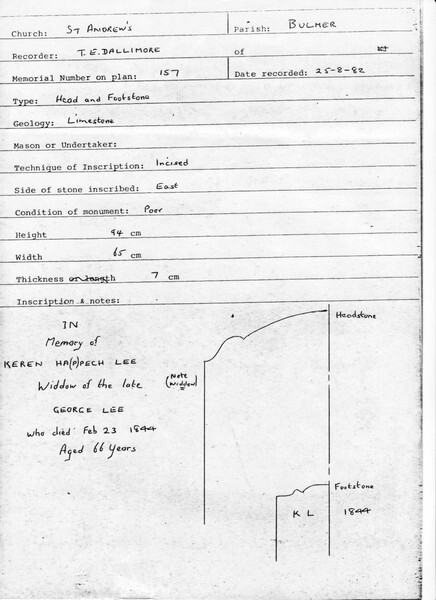 Church: ST ANDREW'S Parish: BULMER
Recorder: T. E. DALLIMORE of
Memorial Number on plan: 157 Date recorded: 25-8-82
Type: Head and Footstone
Geology: Limestone
Mason or Undertaker:
Technique of Inscription: Incised
Side of stone inscribed: East
Condition of monument: Poor
Height 94 cm
Width 65 cm
Thickness or length 7 cm
Inscription & notes:
Headstone
IN
Memory of
KEREN HA(P)PECH LEE
Widdow of the late
(Note Widdow)
GEORGE LEE
who died Feb 23 1844
Aged 66 Years
Footstone
K L 1844